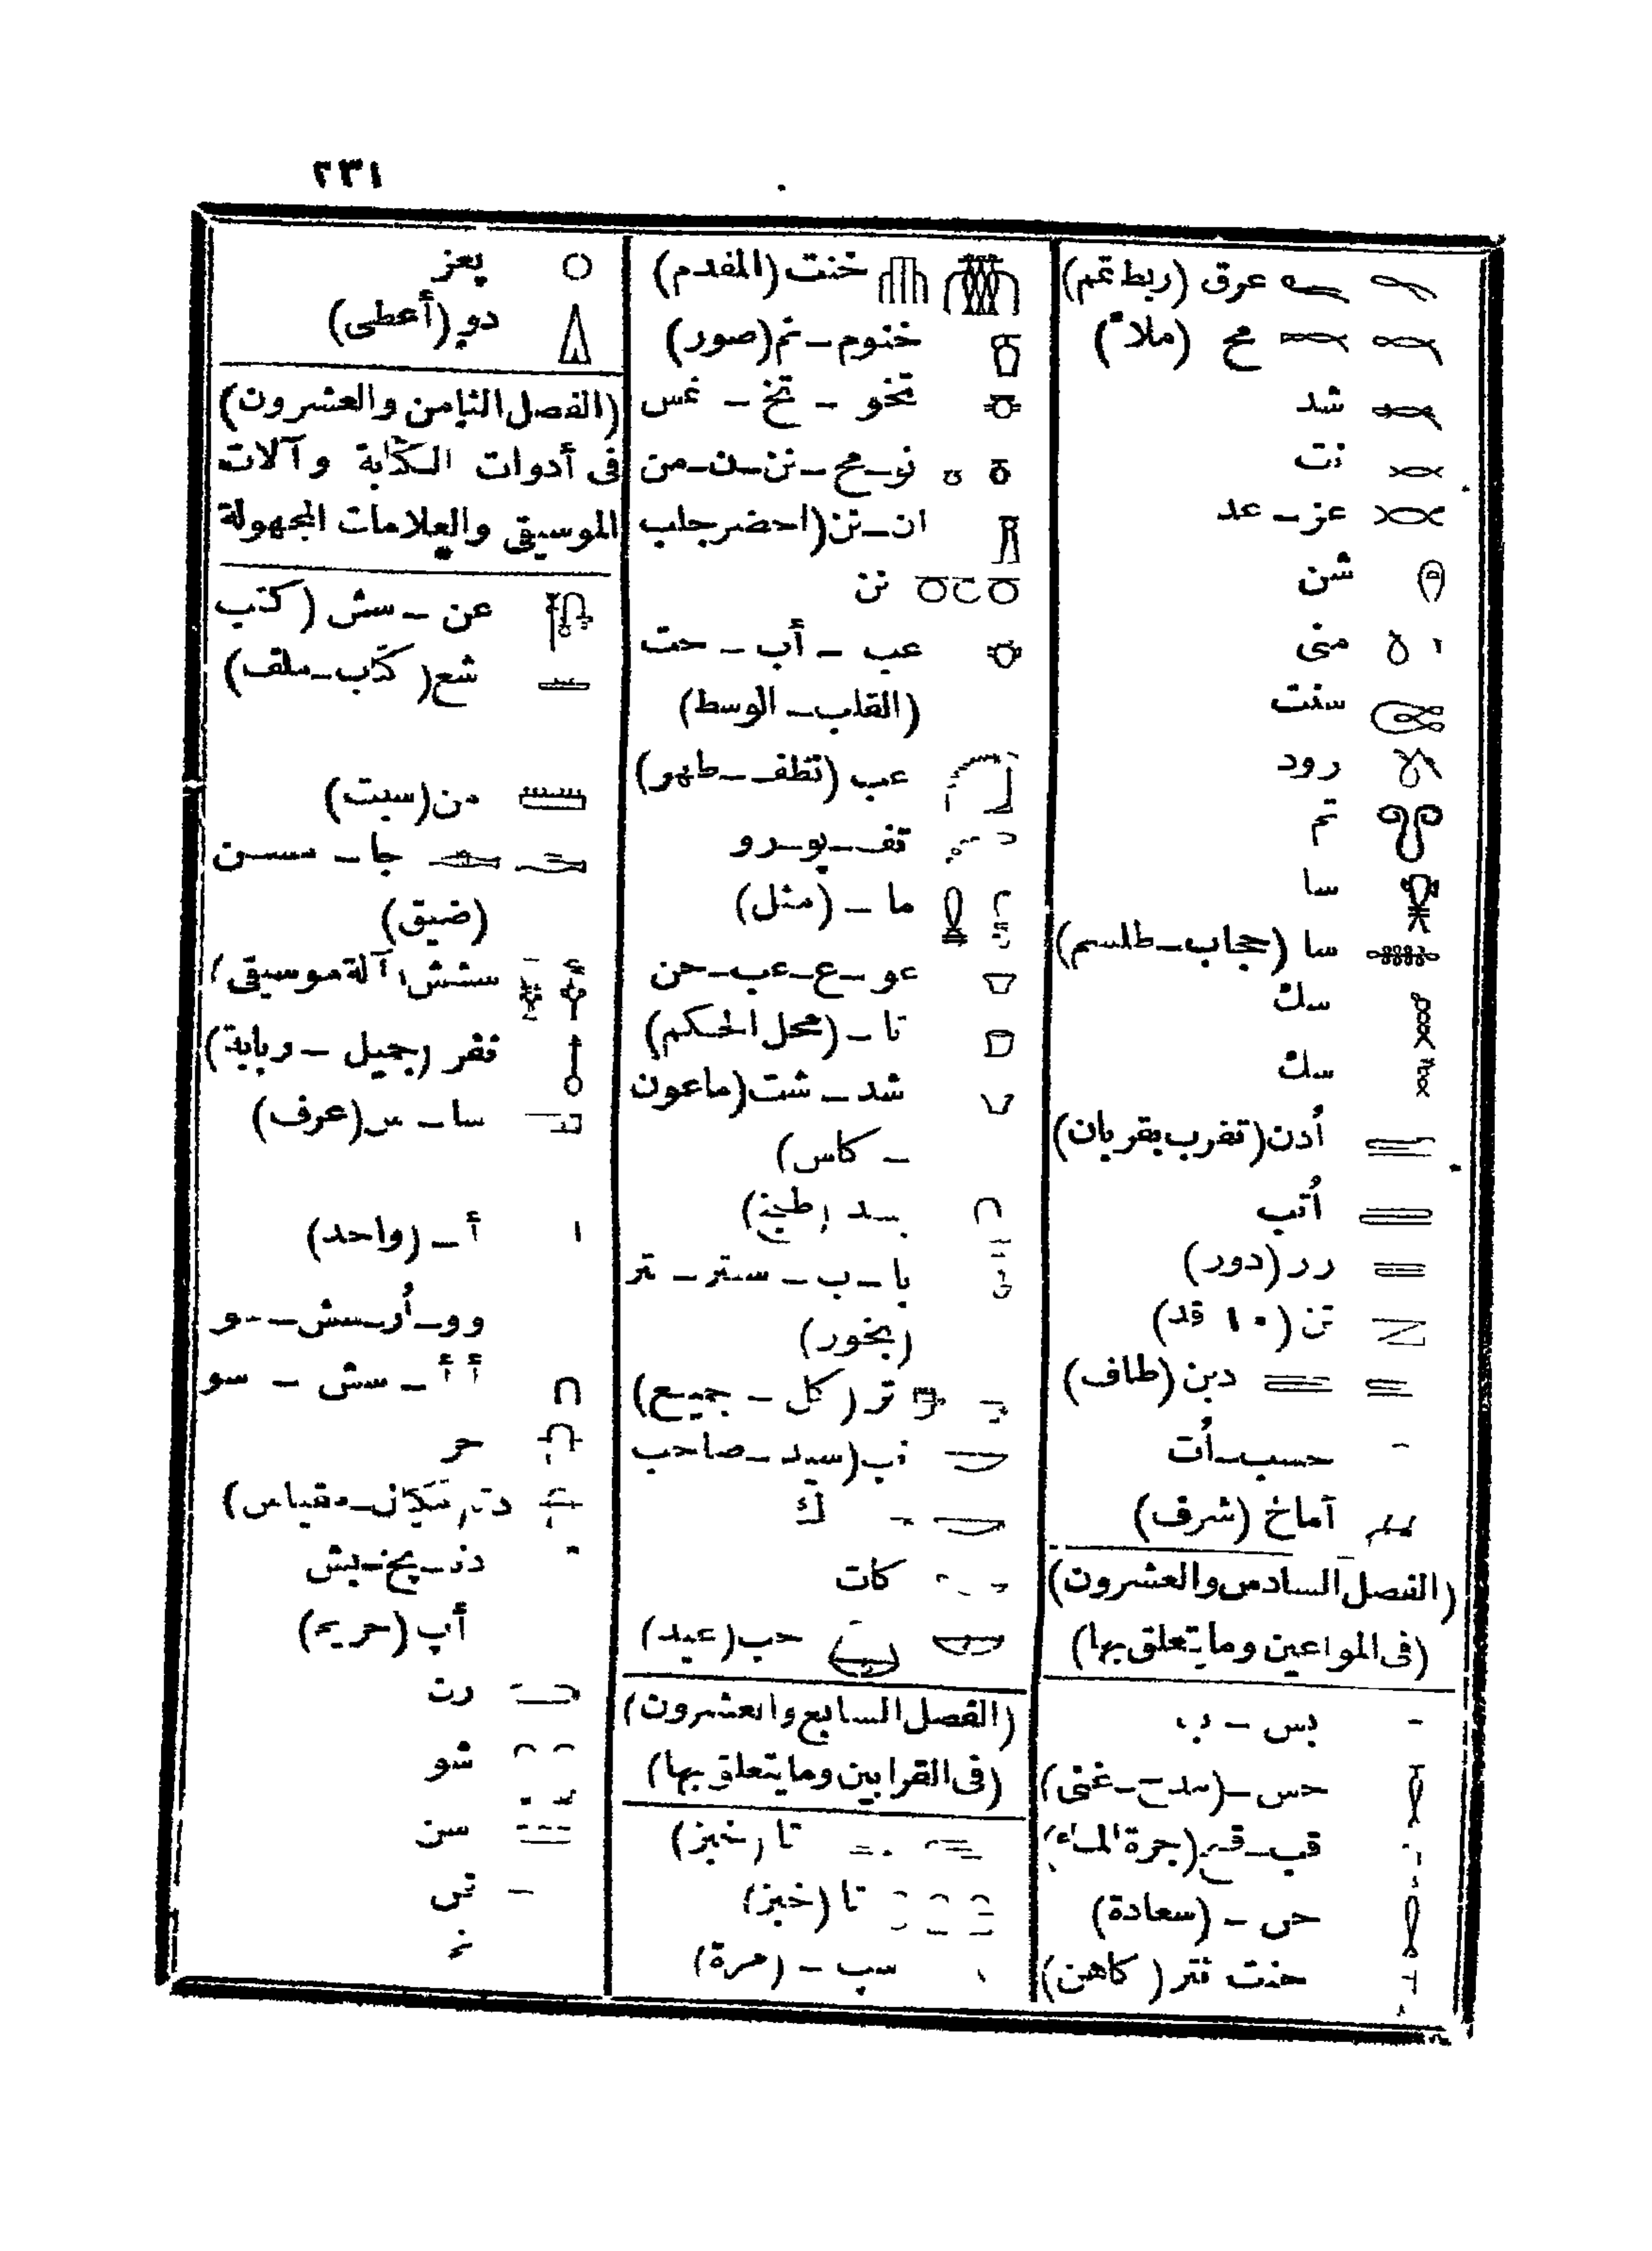 ٢٣١
عرق (ربط تمم)
مح (ملأ)
شد
نت
عز - عد
شن
منى
سنت
رود
تم
سا
سا (حجاب - طلسم)
سك
سك
أدن (تقرب بقربان)
أتب
رر (دور)
تن (١٠ قد)
دبن (طاف)
حسب - أت
آماخ (شرف)
(الفصل السادس والعشرون)
(فى المواعين وما يتعلق بها)
بس - ب
حس - (مدح - غنى)
قب - (جرة الماء)
حى - (سعادة)
حنت نتر (كاهن)
خنت (المقدم)
خنوم - نم (صور)
تخو - تخ - غس
نو - مح - نن - ن - من
ان - تن (احضر جلب
نن
عب - أب - حت
(القلب - الوسط)
عب (تظف - طهر)
تف - پو - رو
ما - (مثل)
عو - ع - عب - حن
نا - (محل الحكم)
شد - شت (ماعون
- كاس)
با - ب - ستر - تر
(بخور)
تر (كل - جميع)
نب (سيد - صاحب
ك
كات
حب (عيد)
(الفصل السابع والعشرون)
(فى القرابين وما يتعلق بها)
تا (خبز)
تا (خبز)
سپ - (مرة)
پعز
دو (أعطى)
(الفصل الثامن والعشرون)
فى أدوات الكتابة وآلات
الموسيقى والعلامات المجهولة
عن - سش (كتب
شع (كتاب - ملف)
من (سبت)
جا - سسن
(ضيق)
سشش (آلة موسيقى)
نفر (جميل - ربابة)
سا - س (عرف)
أ - (واحد)
وو - أر - سش - سو
أأ - سش - سو
حر
(مكان - مقياس)
دن - پخ - پش
أپ (حريم)
رت
شو
سن
تى